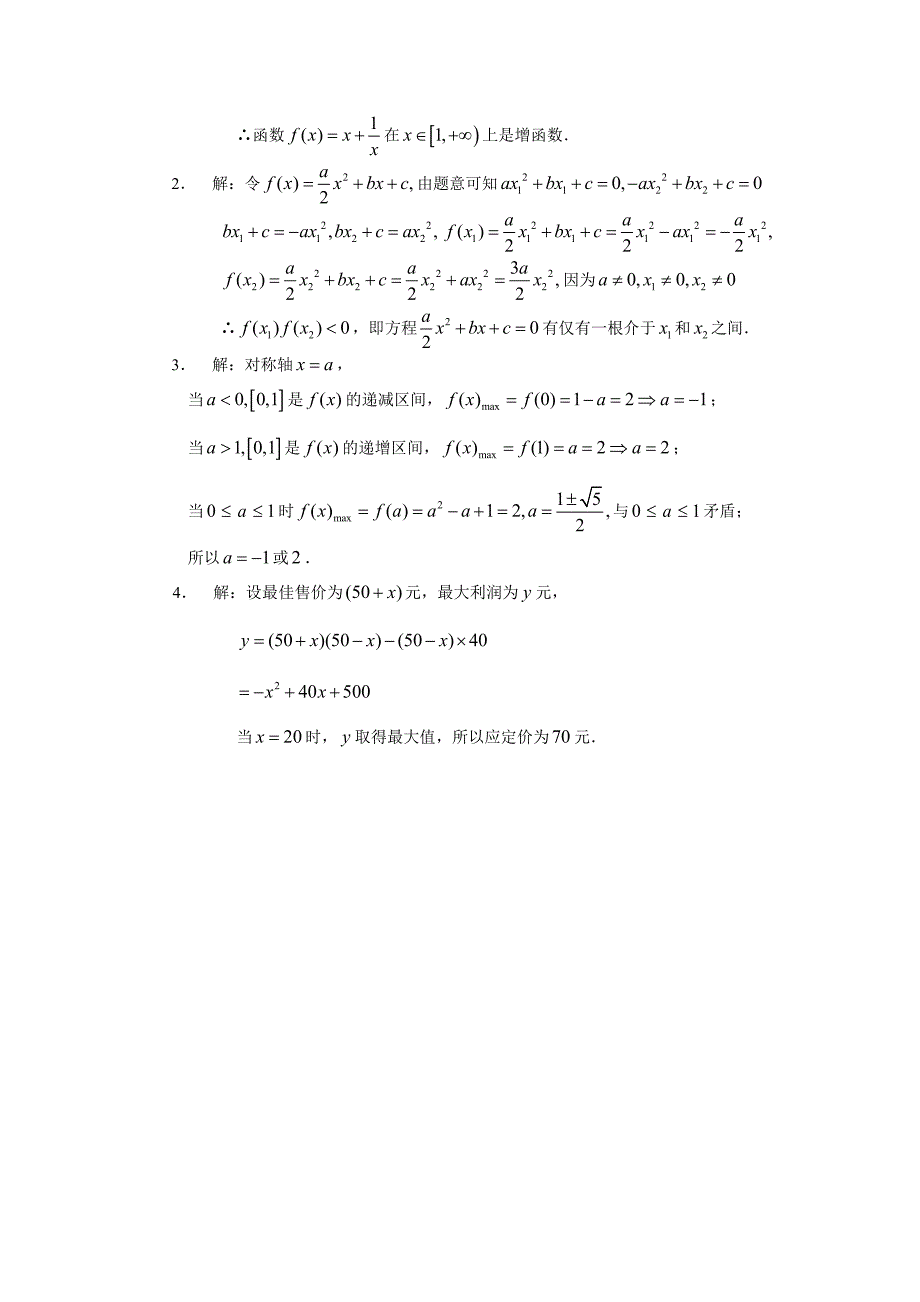 ∴函数 f(x) = x + 1/x 在 x∈[1,+∞) 上是增函数．
2． 解：令 f(x) = a/2 x² + bx + c, 由题意可知 ax₁² + bx₁ + c = 0, −ax₂² + bx₂ + c = 0
bx₁ + c = −ax₁², bx₂ + c = ax₂², f(x₁) = a/2 x₁² + bx₁ + c = a/2 x₁² − ax₁² = −a/2 x₁²,
f(x₂) = a/2 x₂² + bx₂ + c = a/2 x₂² + ax₂² = 3a/2 x₂², 因为 a ≠ 0, x₁ ≠ 0, x₂ ≠ 0
∴ f(x₁)f(x₂) < 0，即方程 a/2 x² + bx + c = 0 有仅有一根介于 x₁ 和 x₂ 之间．
3． 解：对称轴 x = a，
当 a < 0, [0,1] 是 f(x) 的递减区间，f(x)max = f(0) = 1 − a = 2 ⇒ a = −1；
当 a > 1, [0,1] 是 f(x) 的递增区间，f(x)max = f(1) = a = 2 ⇒ a = 2；
当 0 ≤ a ≤ 1 时 f(x)max = f(a) = a² − a + 1 = 2, a = (1 ± √5)/2, 与 0 ≤ a ≤ 1 矛盾；
所以 a = −1 或 2．
4． 解：设最佳售价为 (50 + x) 元，最大利润为 y 元，
y = (50 + x)(50 − x) − (50 − x) × 40
= −x² + 40x + 500
当 x = 20 时，y 取得最大值，所以应定价为 70 元．